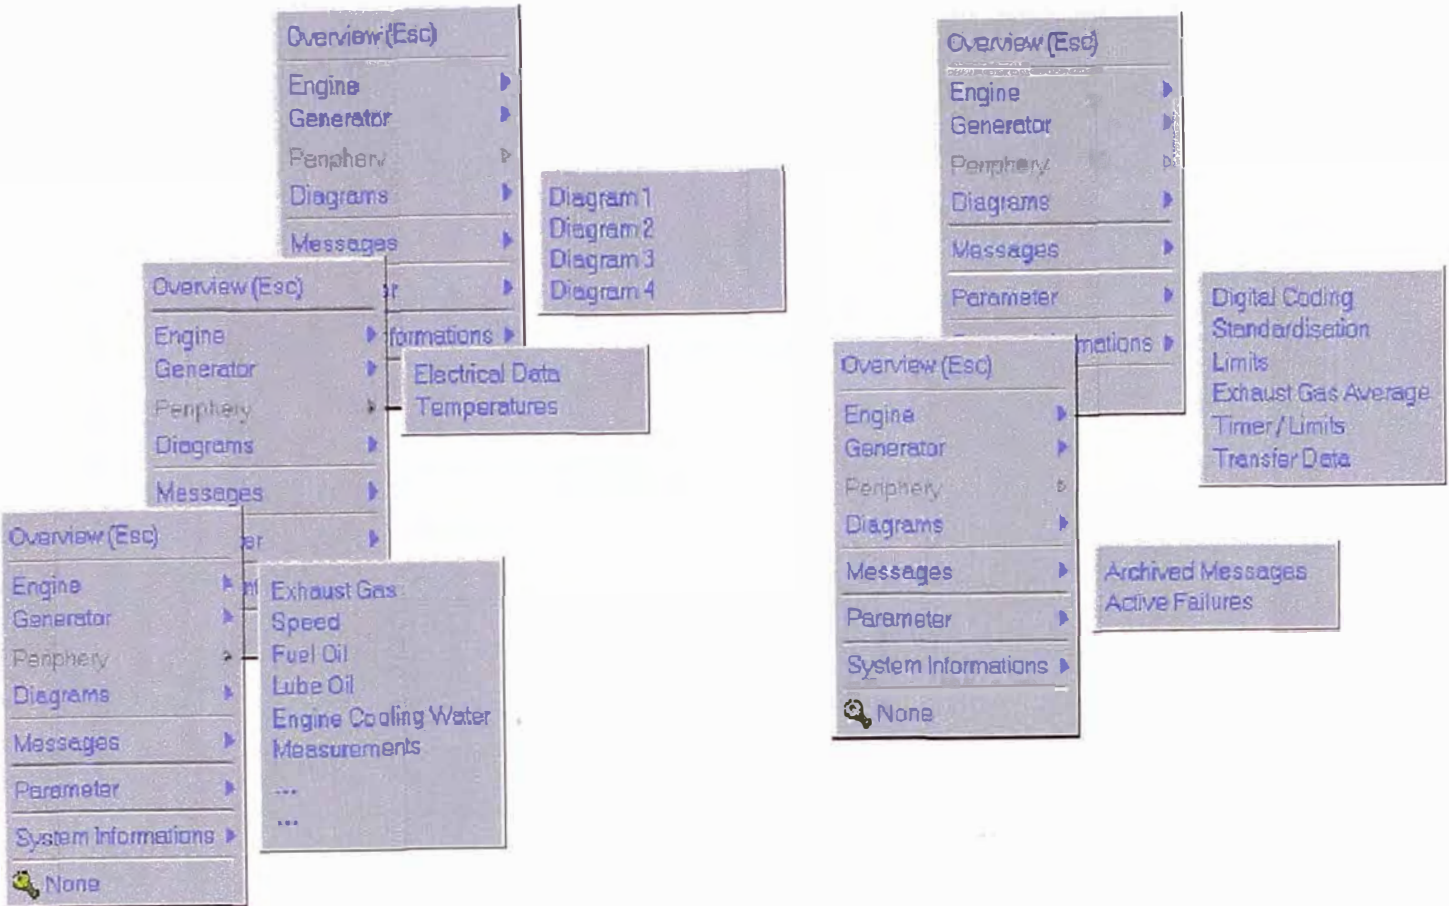 Overview (Esc)
Engine
Generator
Periphery
Diagrams
Messages
er
formations
Diagram 1
Diagram 2
Diagram 3
Diagram 4
Overview (Esc)
Engine
Generator
Periphery
Diagrams
Messages
er
Electrical Data
Temperatures
Overview (Esc)
Engine
Generator
Periphery
Diagrams
Messages
Parameter
System Informations
None
Exhaust Gas
Speed
Fuel Oil
Lube Oil
Engine Cooling Water
Measurements
...
...
Overview (Esc)
Engine
Generator
Periphery
Diagrams
Messages
Parameter
mations
Digital Coding
Standardisation
Limits
Exhaust Gas Average
Timer / Limits
Transfer Data
Overview (Esc)
Engine
Generator
Periphery
Diagrams
Messages
Parameter
System Informations
None
Archived Messages
Active Failures